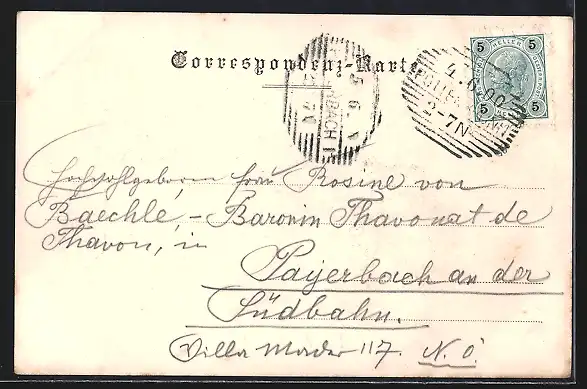 Correspondenz-Karte
5 HELLER 5
5 5
4. 6. 00
2-7N
5. 6.
BACH
Hochwohlgeboren Frau Rosine von
Baechlé, - Baronin Thavonat de
Thavon, in
Payerbach an der
Südbahn.
Villa Mader 117. N. Ö.